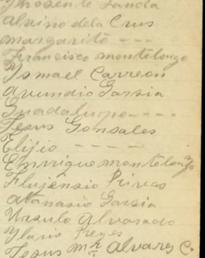 Alvino dela Crus
margarito - - -
Francisco montelongo
Ismael Carreon
Garsia
Guadalupe - - -
Jesus Gonsales
Elijio - - - -
Enrrique montelongo
Atanasio Garsia
Ursulo Alvarado
Ylario Reyes
Jesus Ma Alvares C.